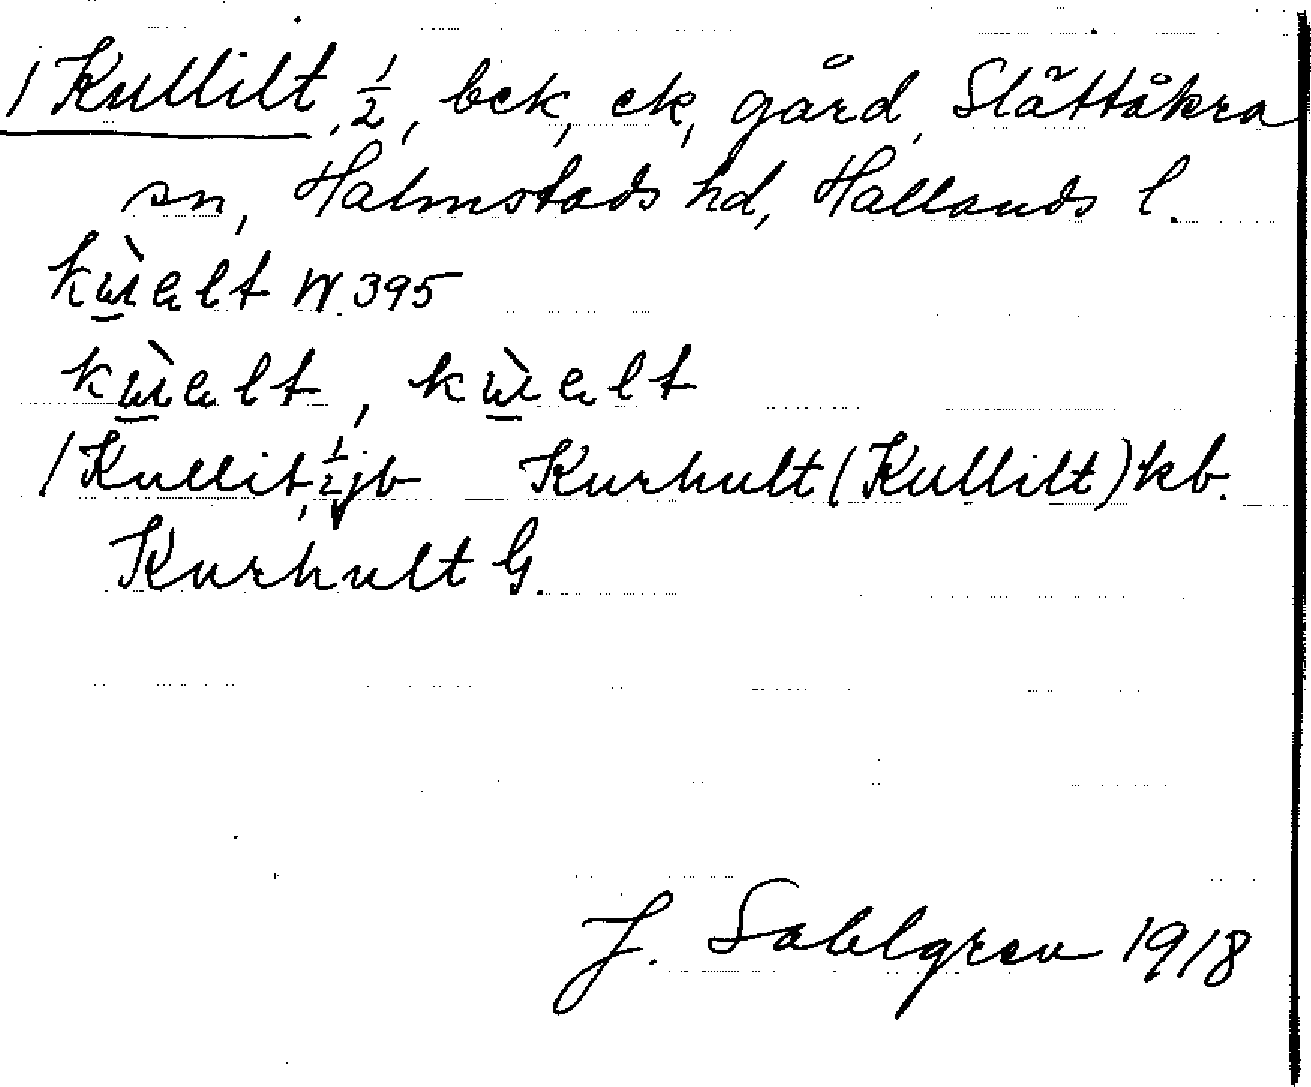 /Kullilt, ½, bck, ck, gård, Slättåkra
sn, Halmstads hd, Hallands l.
W. 395
/Kullit, ½ jb Kurhult (Kullilt) kb.
Kurhult G.
J. Sahlgren 1918